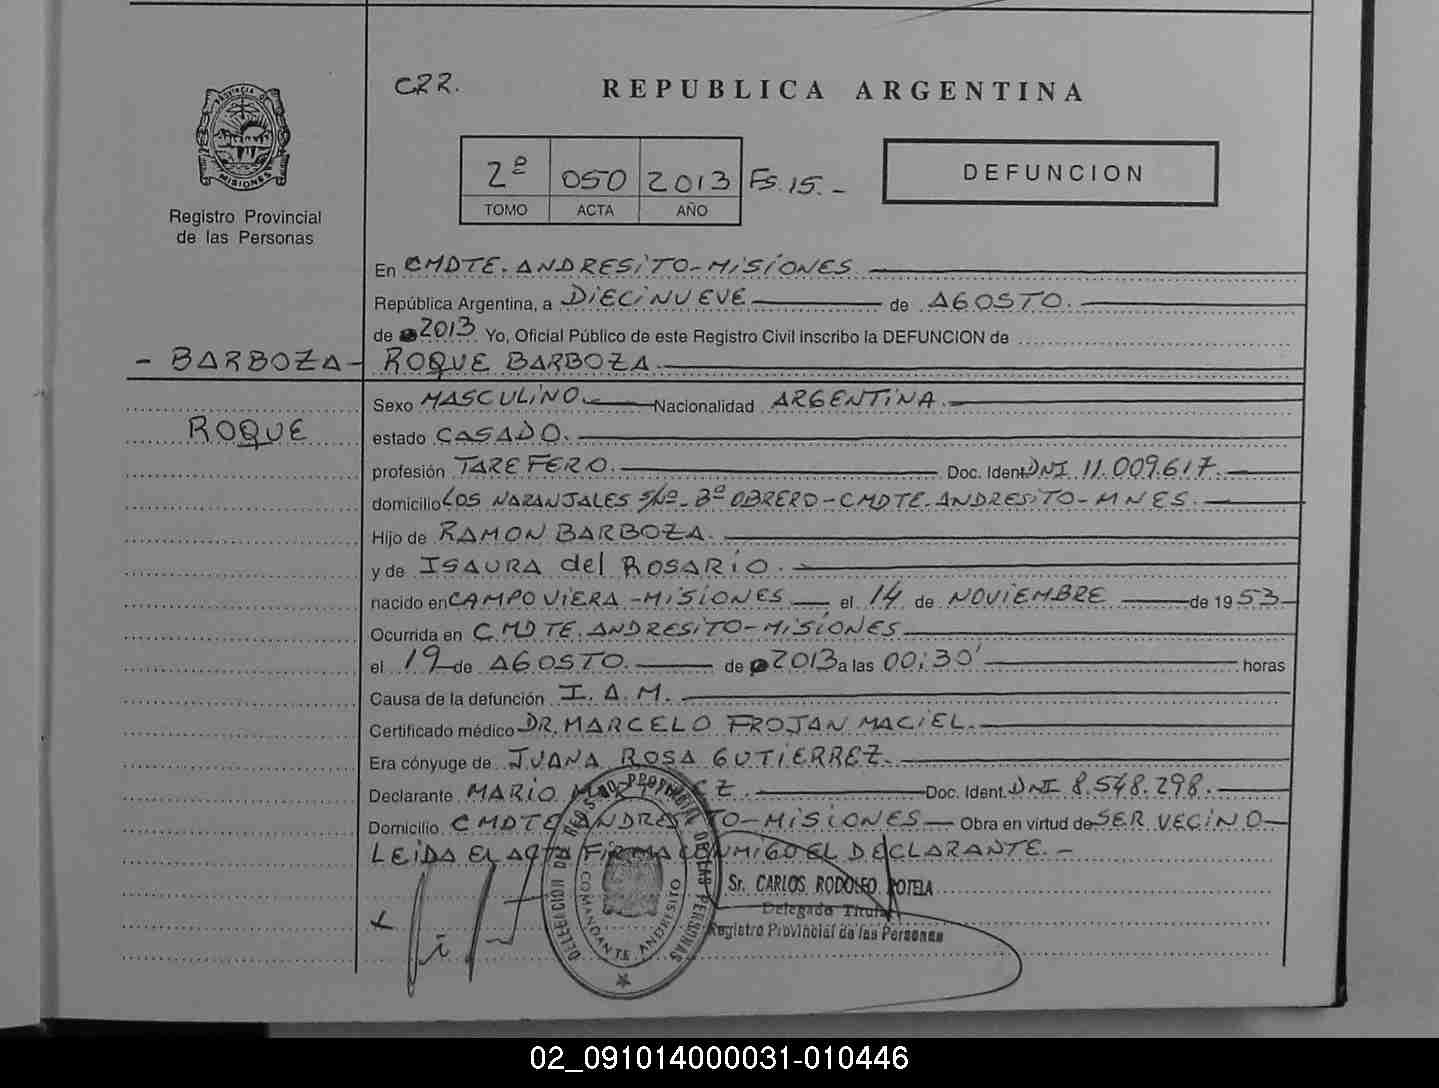 C.R.R.
REPUBLICA ARGENTINA
PROVINCIA D
MISIONES
Registro Provincial
de las Personas
2º 050 2013 Fs. 15.-
TOMO ACTA AÑO
DEFUNCION
En CMDTE. ANDRESITO-MISIONES
República Argentina, a DIECINUEVE de AGOSTO.
de 2013 Yo, Oficial Público de este Registro Civil inscribo la DEFUNCION de
- BARBOZA - ROQUE BARBOZA.
Sexo MASCULINO. Nacionalidad ARGENTINA.
ROQUE estado CASADO.
profesión TAREFERO. Doc. Ident. DNI 11.009.617.
domicilio LOS NARANJALES S/Nº- Bº OBRERO-CMDTE. ANDRESITO-MNES.
Hijo de RAMON BARBOZA.
y de ISAURA del ROSARIO.
nacido en CAMPO VIERA-MISIONES el 14 de NOVIEMBRE de 1953
Ocurrida en CMDTE. ANDRESITO-MISIONES
el 19 de AGOSTO. de 2013 a las 00:30' horas
Causa de la defunción I.A.M.
Certificado médico DR. MARCELO FROJAN MACIEL.
Era cónyuge de JUANA ROSA GUTIERREZ.
Declarante MARIO Doc. Ident. DNI 8.548.298.
Domicilio CMDTE ANDRESITO-MISIONES Obra en virtud de SER VECINO
LEIDA EL ACTA FIRMA CONMIGO EL DECLARANTE.-
DELEGACION DEL REGISTRO PROVINCIAL DE LAS PERSONAS
COMANDANTE ANDRESITO
Sr. CARLOS RODOLFO ROTELA
Delegado Titular
Registro Provincial de las Personas
02_091014000031-010446